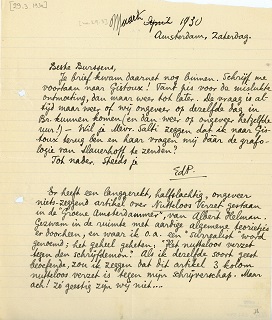 [29.3.1930]
Maart April 1930
Amsterdam, Zaterdag.
Beste Burssens,
Je brief kwam daarnet nog binnen. Schrijf me
voortaan naar Gistoux! Want pas voor de mislukte
ontmoeting, dan maar weer tot later. De vraag is al
tijd maar weer of wij ongeveer op dezelfde dag in
Br. kunnen komen (en dan weer op ongeveer hetzelfde
uur!) – Wil je Mevr. Salti zeggen dat ik naar Gis-
toux terug ben en haar vragen mij daar de grafo-
logie van Slauerhoff te zenden?
Tot nader. Steeds je
EdP.
Er heeft een langgerekt, halfslachtig, ongeveer
niets-zeggend artikel over Nutteloos Verzet gestaan
in de Groene Amsterdammer, van Albert Helman.
Gezwam in de ruimte met aardige algemene theorieties
er doorheen, en waar ik o.a. een "surrealist" word
genoemd; het geheel geheten: "Het nutteloos verzet
tegen den schrijfdemon". Als ik derzelfde soort geest
zou ik zeggen dat dit artikel 3 kolom
nutteloos verzet is tegen mijn schrijverschap. Maar
ach! zo geestig zijn wij niet....